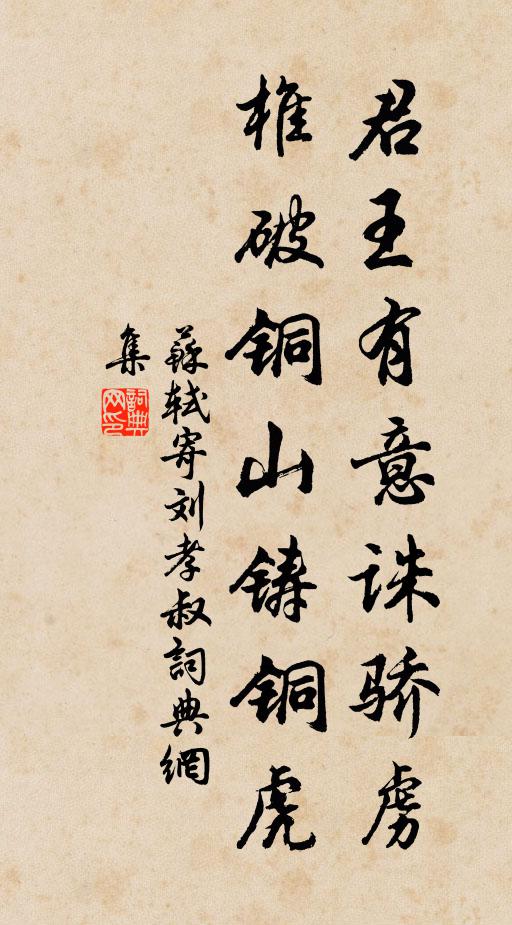 君王有意诛骄虏
椎破铜山铸铜虎
蘇軾寄刘孝叔詞典網
集
詞典
网印